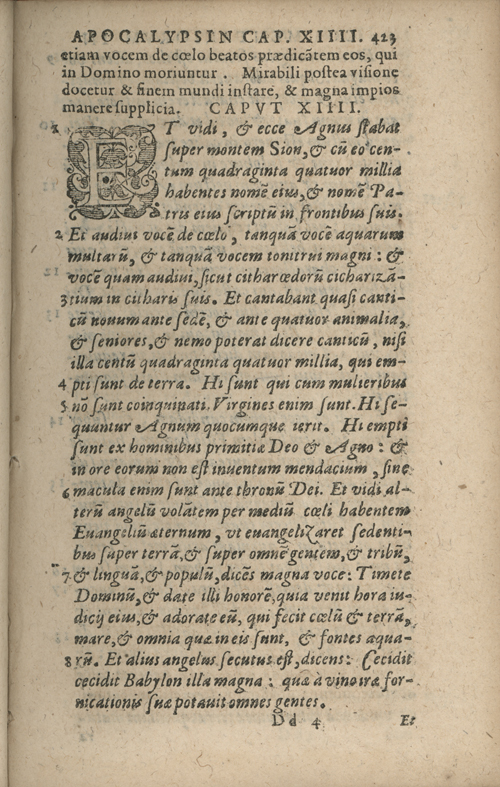 APOCALYPSIN CAP. XIIII. 423
etiam vocem de cœlo beatos prædicãtem eos, qui
in Domino moriuntur. Mirabili postea visione
docetur & finem mundi instare, & magna impios
manere supplicia. CAPVT XIIII.
1 ET vidi, & ecce Agnus stabat
super montem Sion, & cũ eo cen-
tum quadraginta quatuor millia
habentes nomẽ eius, & nomẽ Pa-
tris eius scriptũ in frontibus suis.
2 Et audiui vocẽ de cœlo, tanquã vocẽ aquarum
multarũ, & tanquã vocem tonitrui magni: &
vocẽ quam audiui, sicut citharœdorũ citharizã-
3 tium in citharis suis. Et cantabant quasi canti-
cũ nouum ante sedẽ, & ante quatuor animalia,
& seniores, & nemo poterat dicere canticũ, nisi
illa centũ quadraginta quatuor millia, qui em-
4 pti sunt de terra. Hi sunt qui cum mulieribus
5 nõ sunt coinquinati. Virgines enim sunt. Hi se-
quuntur Agnum quocumque ierit. Hi empti
sunt ex hominibus primitiæ Deo & Agno: &
in ore eorum non est inuentum mendacium, sine
6 macula enim sunt ante thronũ Dei. Et vidi al-
terũ angelũ volãtem per mediũ cœli habentem
Euangeliũ æternum, vt euangelizaret sedenti-
bus super terrã, & super omnẽ gentem, & tribũ,
7 & linguã, & populũ, dicẽs magna voce: Timete
Dominũ, & date illi honorẽ, quia venit hora iu-
dicij eius, & adorate eũ, qui fecit cœlũ & terrã,
mare, & omnia quæ in eis sunt, & fontes aqua-
8 rũ. Et alius angelus secutus est, dicens: Cecidit
cecidit Babylon illa magna: quæ à vino iræ for-
nicationis suæ potauit omnes gentes.
Dd 4 Et